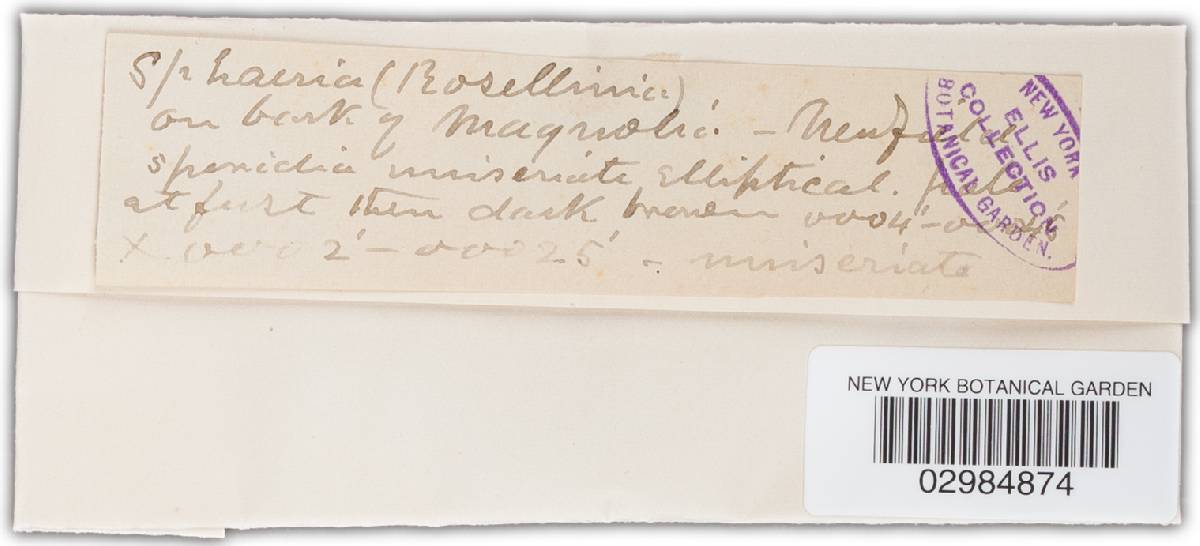 Sphaeria (Rosellinia)
on bark of Magnolia - Newfield
sporidia uniseriate elliptical.
at first then dark brown 0004'-
x 0002'-00025' - uniseriate
NEW YORK
ELLIS
COLLECTION
BOTANICAL GARDEN.
NEW YORK BOTANICAL GARDEN
02984874